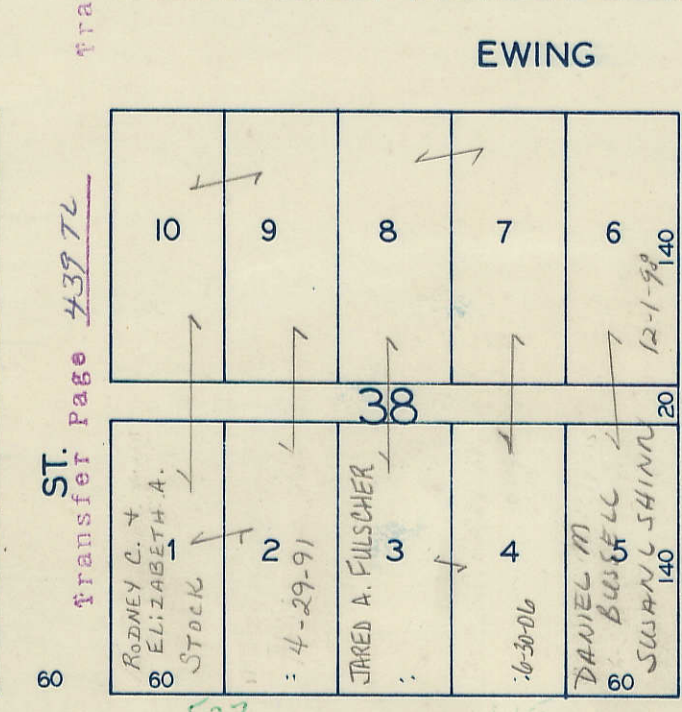 EWING
ST.
Transfer Page 439 TL
Tra
10
9
8
7
6
140
12-1-98
38
20
RODNEY C. +
ELIZABETH A.
STOCK
1
2
: 4-29-91
JARED A. FULSCHER
3
:
4
:6-30-06
DANIEL M
BUSSELL
SUSAN L SHINN
5
140
60
60
60